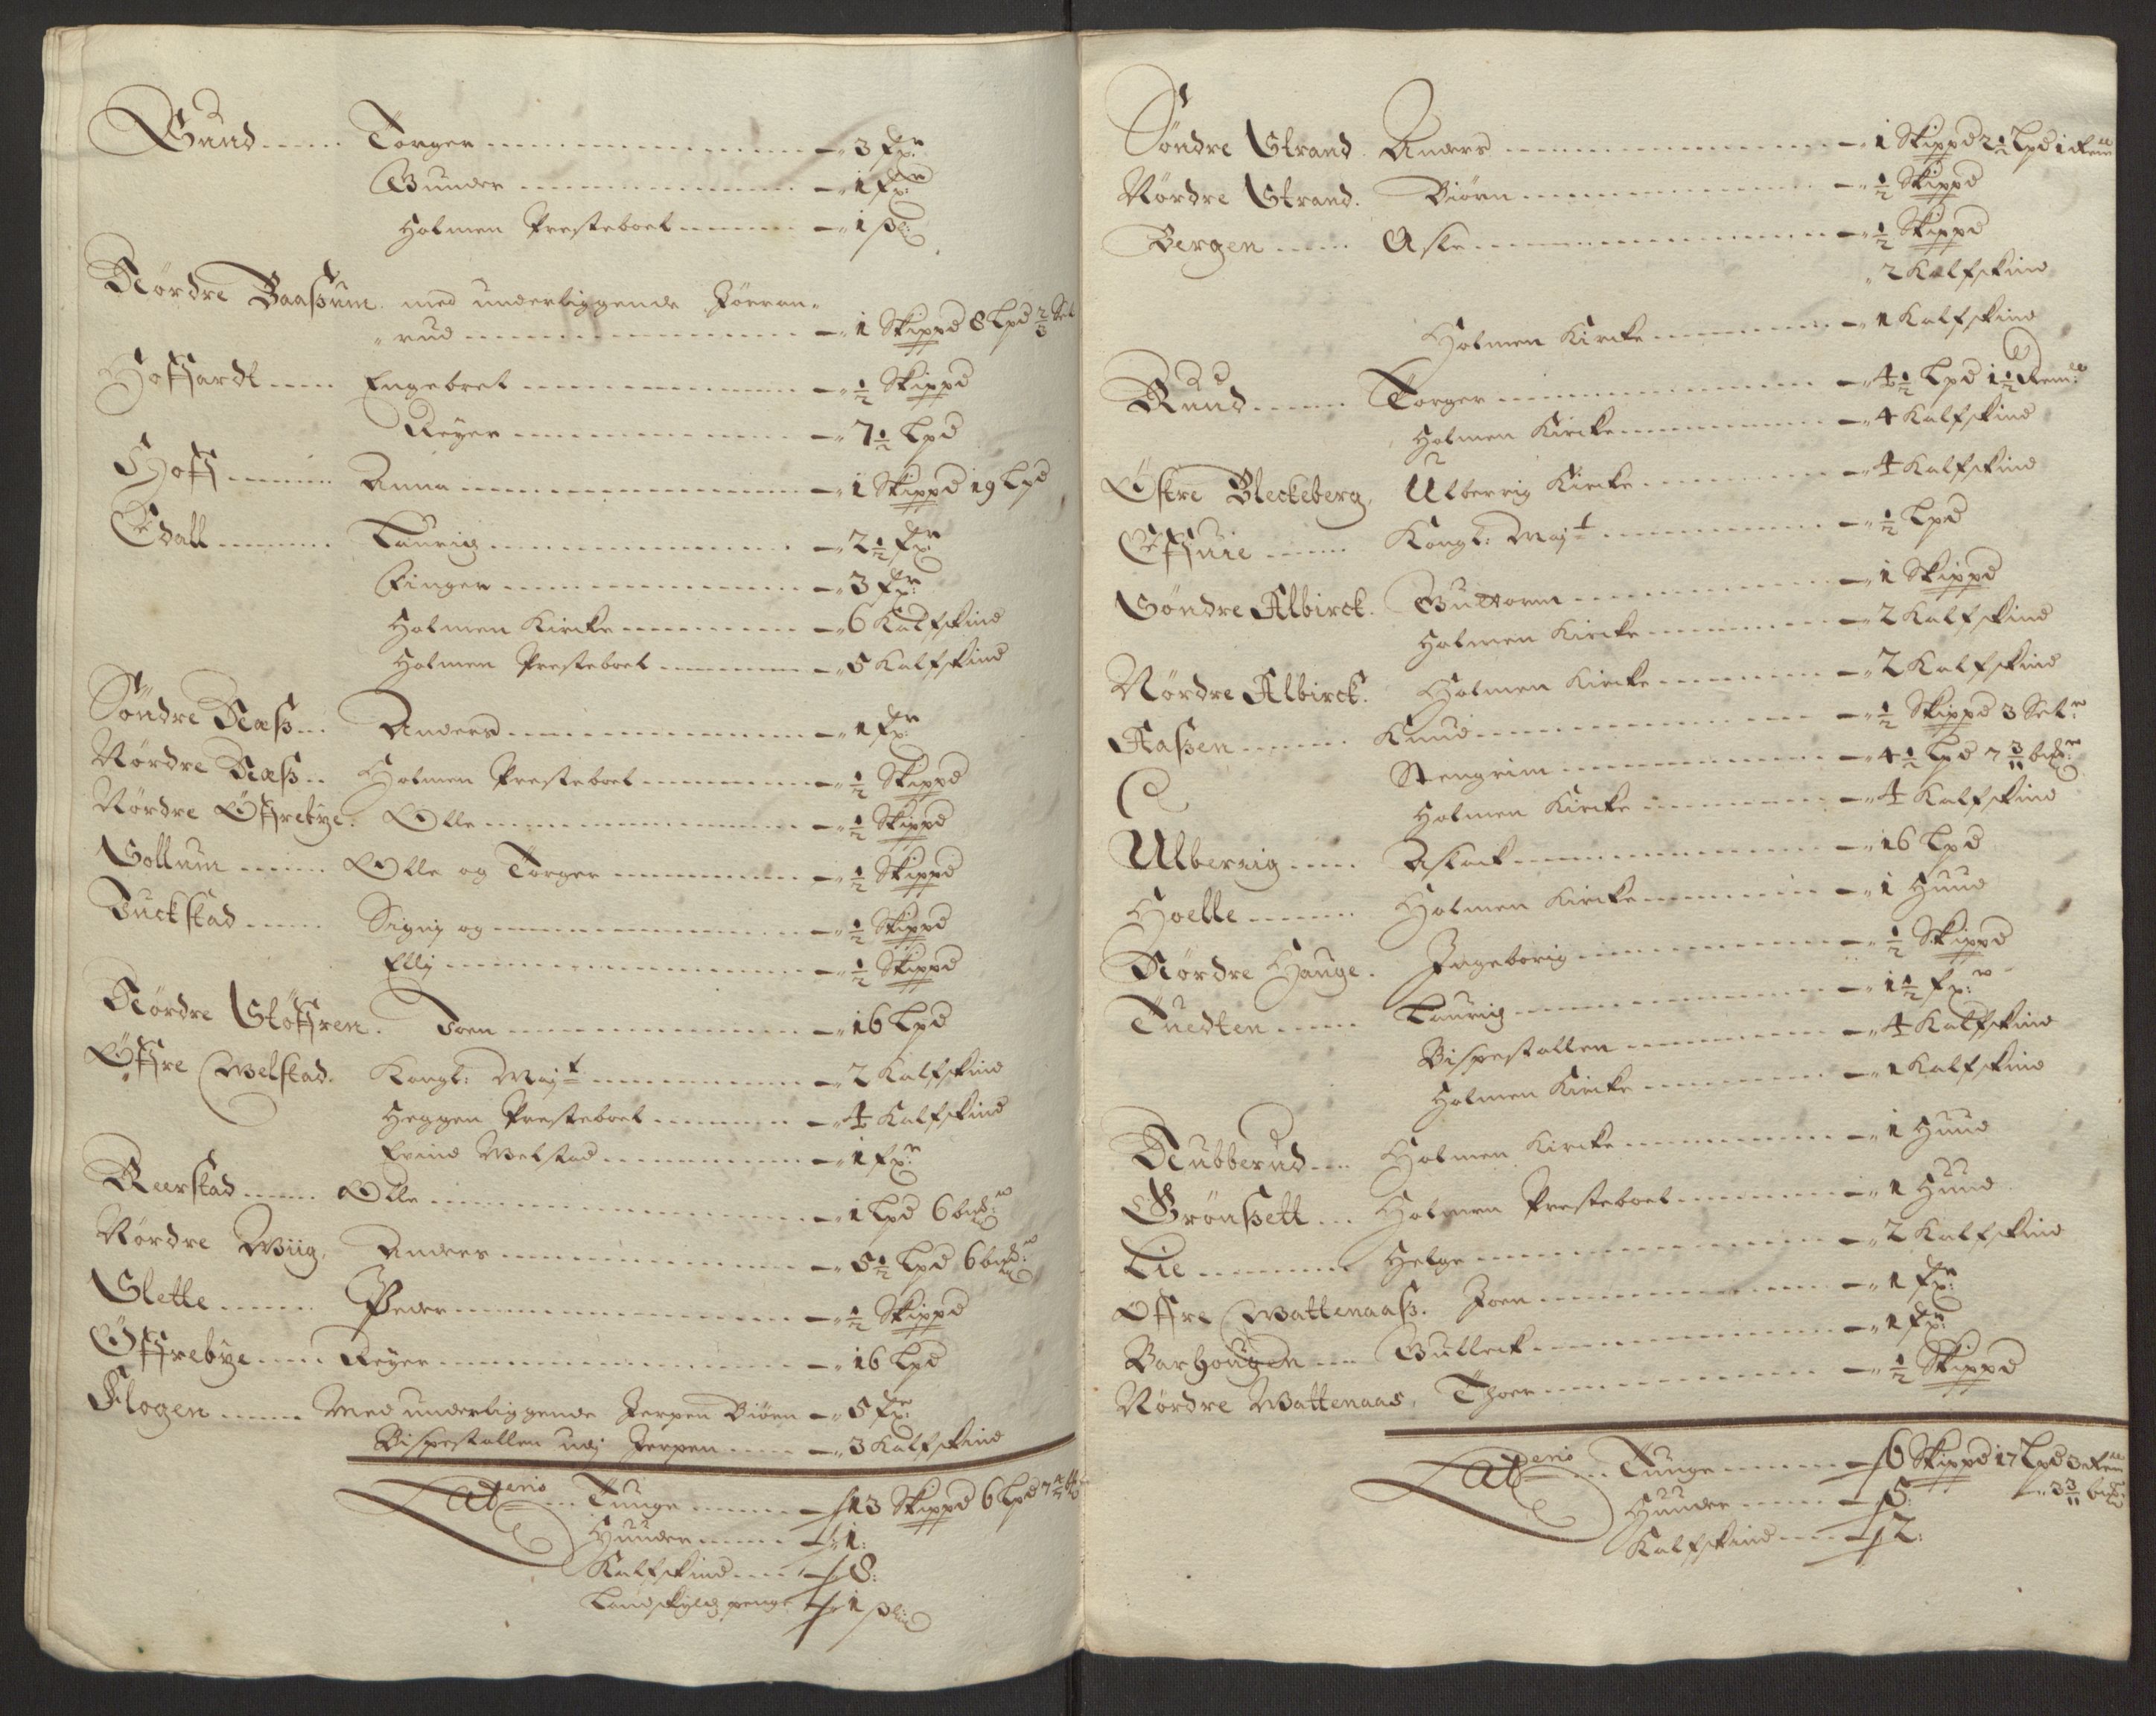 Gund ...... Torger ...... 3 fr:
Gunder ...... 1 fr:
Holmen Presteboel ...... 1 ß
Nørdre Baaßum. med underliggende Jøeran-
rud ...... 1 Skippd 8 Lpd 2/3 Set
Hoffsardt ...... Engebret ...... ½ Skippd
Reyer ...... 7½ Lpd
Hoff ...... Anna ...... 1 Skippd 19 Lpd
Edall ...... Laurig ...... 2½ fr:
Finger ...... 3 fr:
Holmen Kircke ...... 6 Kalfskind
Holmen Presteboel ...... 5 Kalfskind
Søndre Næß ... Anders ...... 1 fr:
Nørdre Næß .. Holmen Presteboel ...... ½ Skippd
Nørdre Øffrebye. Olle ...... ½ Skippd
Sollum ...... Olle og Torger ...... ½ Skippd
Juckstad ...... Signj og ...... ½ Skippd
Ellj ...... ½ Skippd
Nørdre Støffren. Joen ...... 16 Lpd
Øffre Melstad. Kongl: Majt ...... 2 Kalfskind
Heggen Presteboel ...... 4 Kalfskind
Erind Melstad ...... 1 fr:
Reerstad ...... Olle ...... 1 Lpd 6 bmd:
Nørdre Wiig. Anders ...... 5½ Lpd 6 bmd:
Slette ...... Peder ...... ½ Skippd
Øffrebye ...... Reyer ...... 16 Lpd
Flogen ...... Med underliggende Jerpen Biørn 5 fr:
Bispestollen udj Jerpen ...... 3 Kalfskind
Lateris ... Tunge ...... 13 Skippd 6 Lpd
Huuder ...... 1:
Kalfskind ...... 8:
Landskyld penge 1 ß
Søndre Strand. Anders ...... 1 Skippd 2½ Lpd 1 Rem
Nørdre Strand. Biørn ...... ½ Skippd
Bergen ...... Asle ...... ½ Skippd
2 Kalfskind
Holmen Kircke ...... 1 Kalfskind
Ruud ...... Torger ...... 4½ Lpd 1½ Rem:
Holmen Kircke ...... 4 Kalfskind
Østre Bleckeberg, Ulberrig Kircke ...... 4 Kalfskind
Effsuie ...... Kongl: Majt ...... ½ Lpd
Søndre Albirck. Guttorm ...... 1 Skippd
Holmen Kircke ...... 2 Kalfskind
Nørdre Albirck. Holmen Kircke ...... 2 Kalfskind
Aaßen ...... Knud ...... ½ Skippd 3 Set:
Stengrim ...... 4½ Lpd 7 3/11 bmd:
Holmen Kircke ...... 4 Kalfskind
Ulberrig ...... Aslack ...... 16 Lpd
Hoelle ...... Holmen Kircke ...... 1 Huud
Nørdre Hauge. Ingeborig ...... ½ Skippd
Tuedten ...... Laurig ...... 1½ fr:
Bispestollen ...... 4 Kalfskind
Holmen Kircke ...... 1 Kalfskind
Nubberud .... Holmen Kircke ...... 1 Huud
Grønßett ... Holmen Presteboel ...... 1 Huud
Lie ...... Helge ...... 2 Kalfskind
Øffre Wattenaaß. Joen ...... 1 fr:
Barhougen ... Gulleck ...... 1 fr:
Nørdre Wattenaas, Thoer ...... ½ Skippd
Lateris ... Tunge ...... 6 Skippd 17 Lpd 3 Rem
Huuder ...... 5: 3 3/11 bmd:
Kalfskind ...... 2: